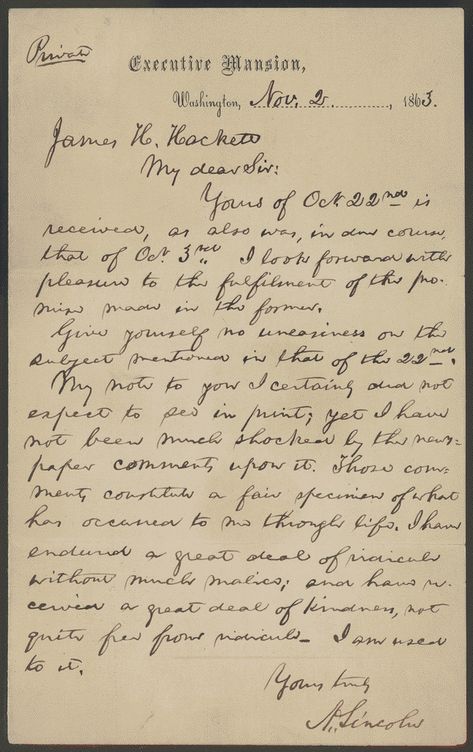 Private
Executive Mansion,
Washington, Nov. 2, 1863.
James H. Hackett
My dear Sir:
Yours of Oct. 22nd is
received, as also was, in due course,
that of Oct. 3rd. I look forward with
pleasure to the fulfilment of the pro-
mise made in the former.
Give yourself no uneasiness on the
subject mentioned in that of the 22nd.
My note to you I certainly did not
expect to see in print; yet I have
not been much shocked by the news-
paper comments upon it. Those com-
ments constitute a fair specimen of what
has occurred to me through life. I have
endured a great deal of ridicule
without much malice; and have re-
ceived a great deal of kindness, not
quite free from ridicule. I am used
to it.
Yours truly
A. Lincoln